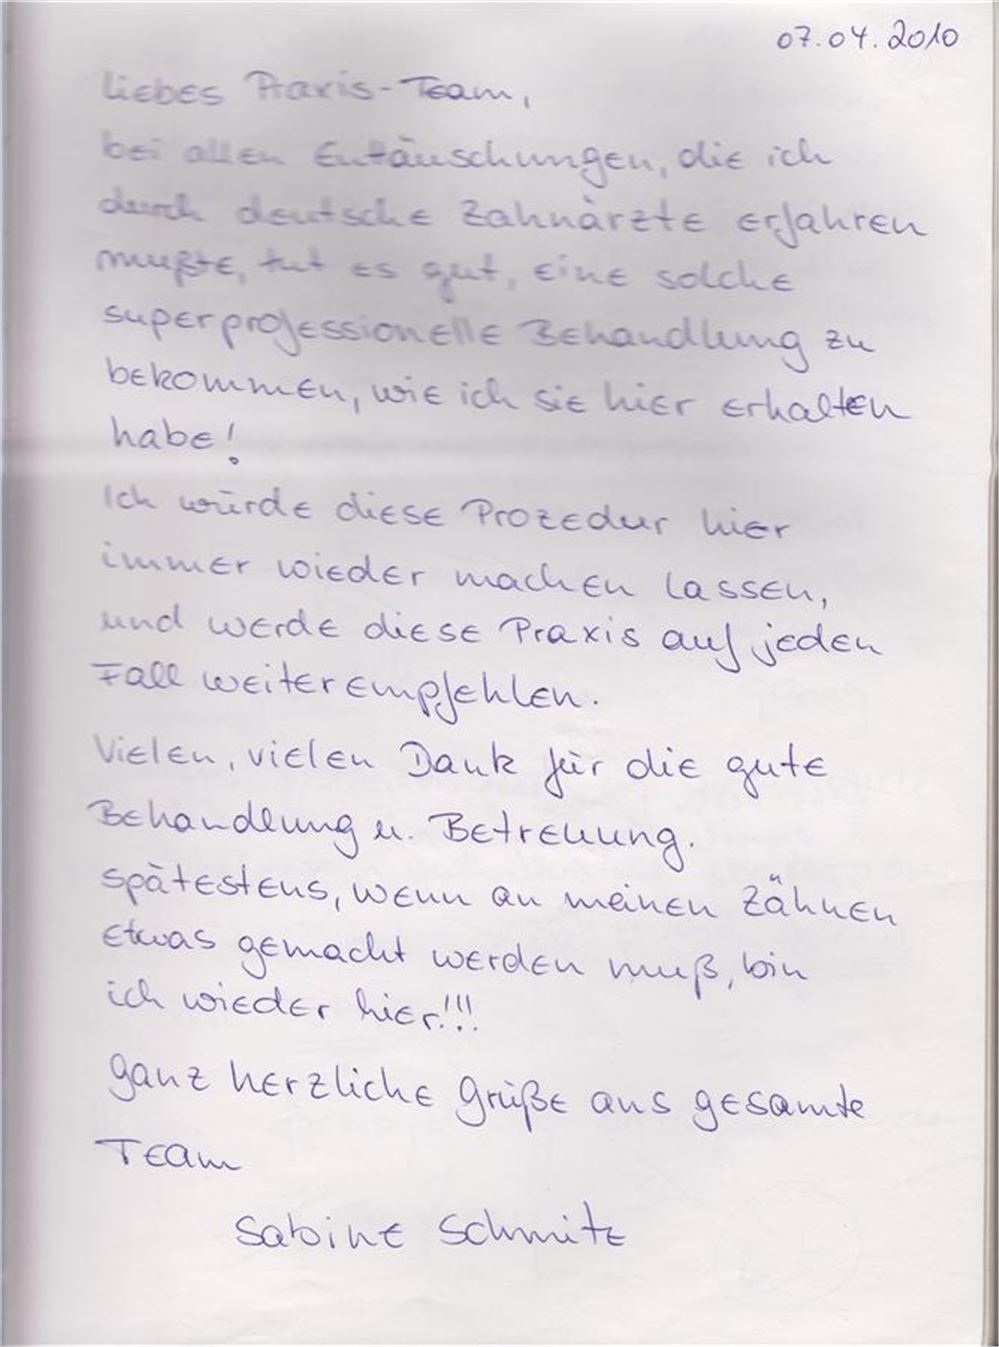 07.04.2010
Liebes Praxis-Team,
bei allen Enttäuschungen, die ich
durch deutsche Zahnärzte erfahren
mußte, tut es gut, eine solche
superprofessionelle Behandlung zu
bekommen, wie ich sie hier erhalten
habe!
Ich würde diese Prozedur hier
immer wieder machen lassen,
und werde diese Praxis auf jeden
Fall weiterempfehlen.
Vielen, vielen Dank für die gute
Behandlung u. Betreuung.
Spätestens, wenn an meinen Zähnen
etwas gemacht werden muß, bin
ich wieder hier!!!
Ganz herzliche Grüße ans gesamte
Team
Sabine Schmitz